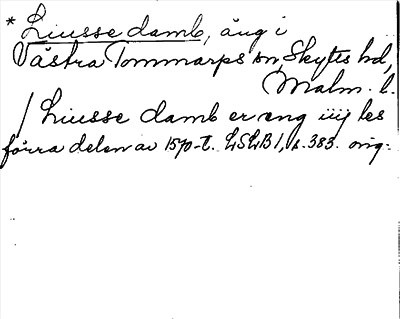 * Liusse damb, äng i
Västra Tommarps sn, Skytts hd,
Malm. l.
/ Liusse damb er eng iiij les
förra delen av 1570-t. LSLB 1, s. 383. orig.